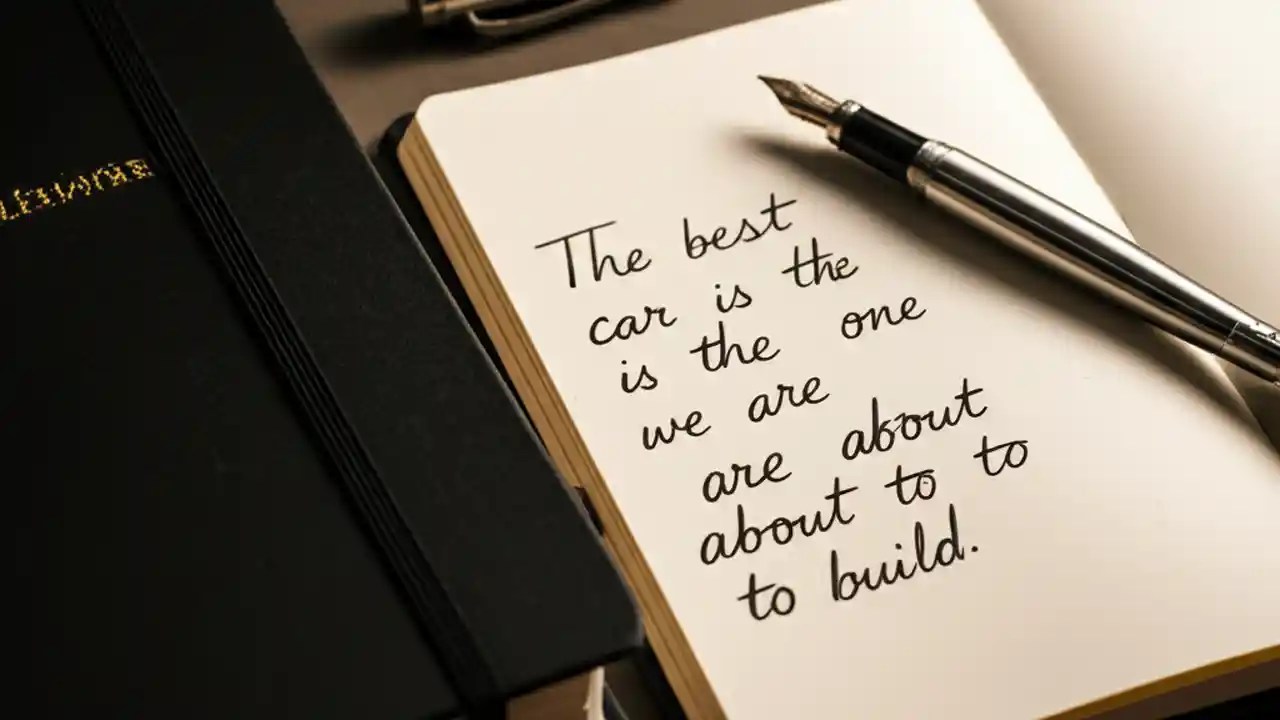 The best
car is the
is the one
we are
are about
about to to
to build.